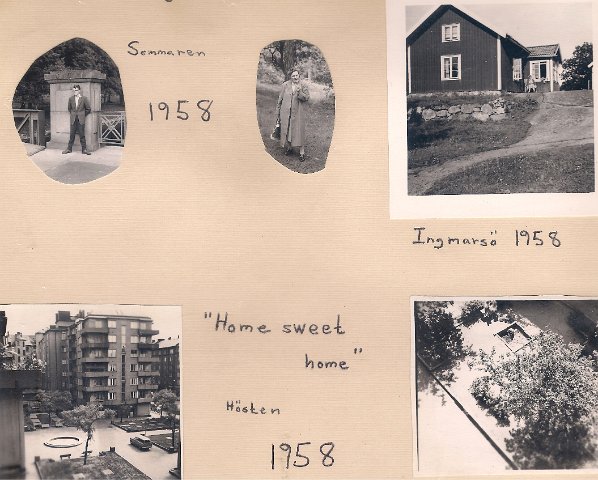 Sommaren
1958
Ingmarsö 1958
"Home sweet
home"
Hösten
1958